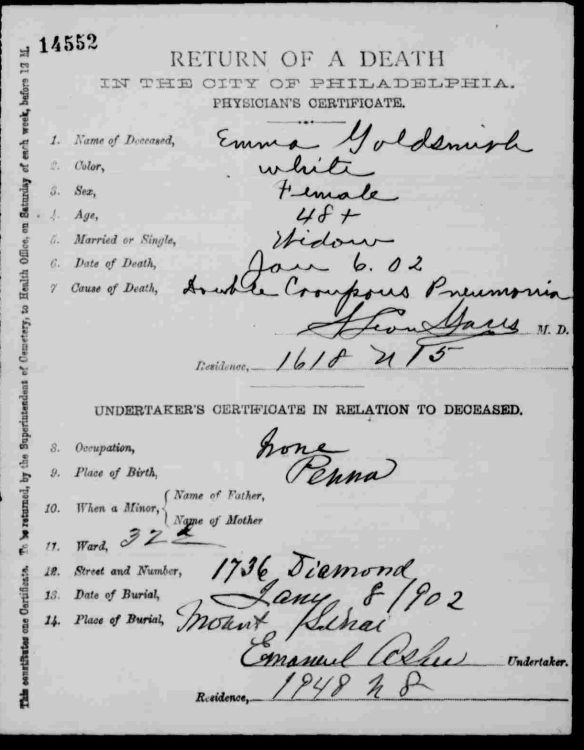 14552
RETURN OF A DEATH
IN THE CITY OF PHILADELPHIA.
PHYSICIAN'S CERTIFICATE.
1. Name of Deceased, Emma Goldsmith
2. Color, white
3. Sex, Female
4. Age, 48+
5. Married or Single, Widow
6. Date of Death, Jan 6. 02
7 Cause of Death, Double Croupous Pneumonia
M. D.
Residence, 1618 N 15
UNDERTAKER'S CERTIFICATE IN RELATION TO DECEASED.
8. Occupation, None
9. Place of Birth, Penna
10. When a Minor, { Name of Father,
Name of Mother
11. Ward, 32
12. Street and Number, 1736 Diamond
13. Date of Burial, Jany 8 1902
14. Place of Burial, Mount Sinai
Emanuel Asher Undertaker.
Residence, 1948 N 8
This constitutes one Certificate. To be returned, by the Superintendent of Cemetery, to Health Office, on Saturday of each week, before 12 M.